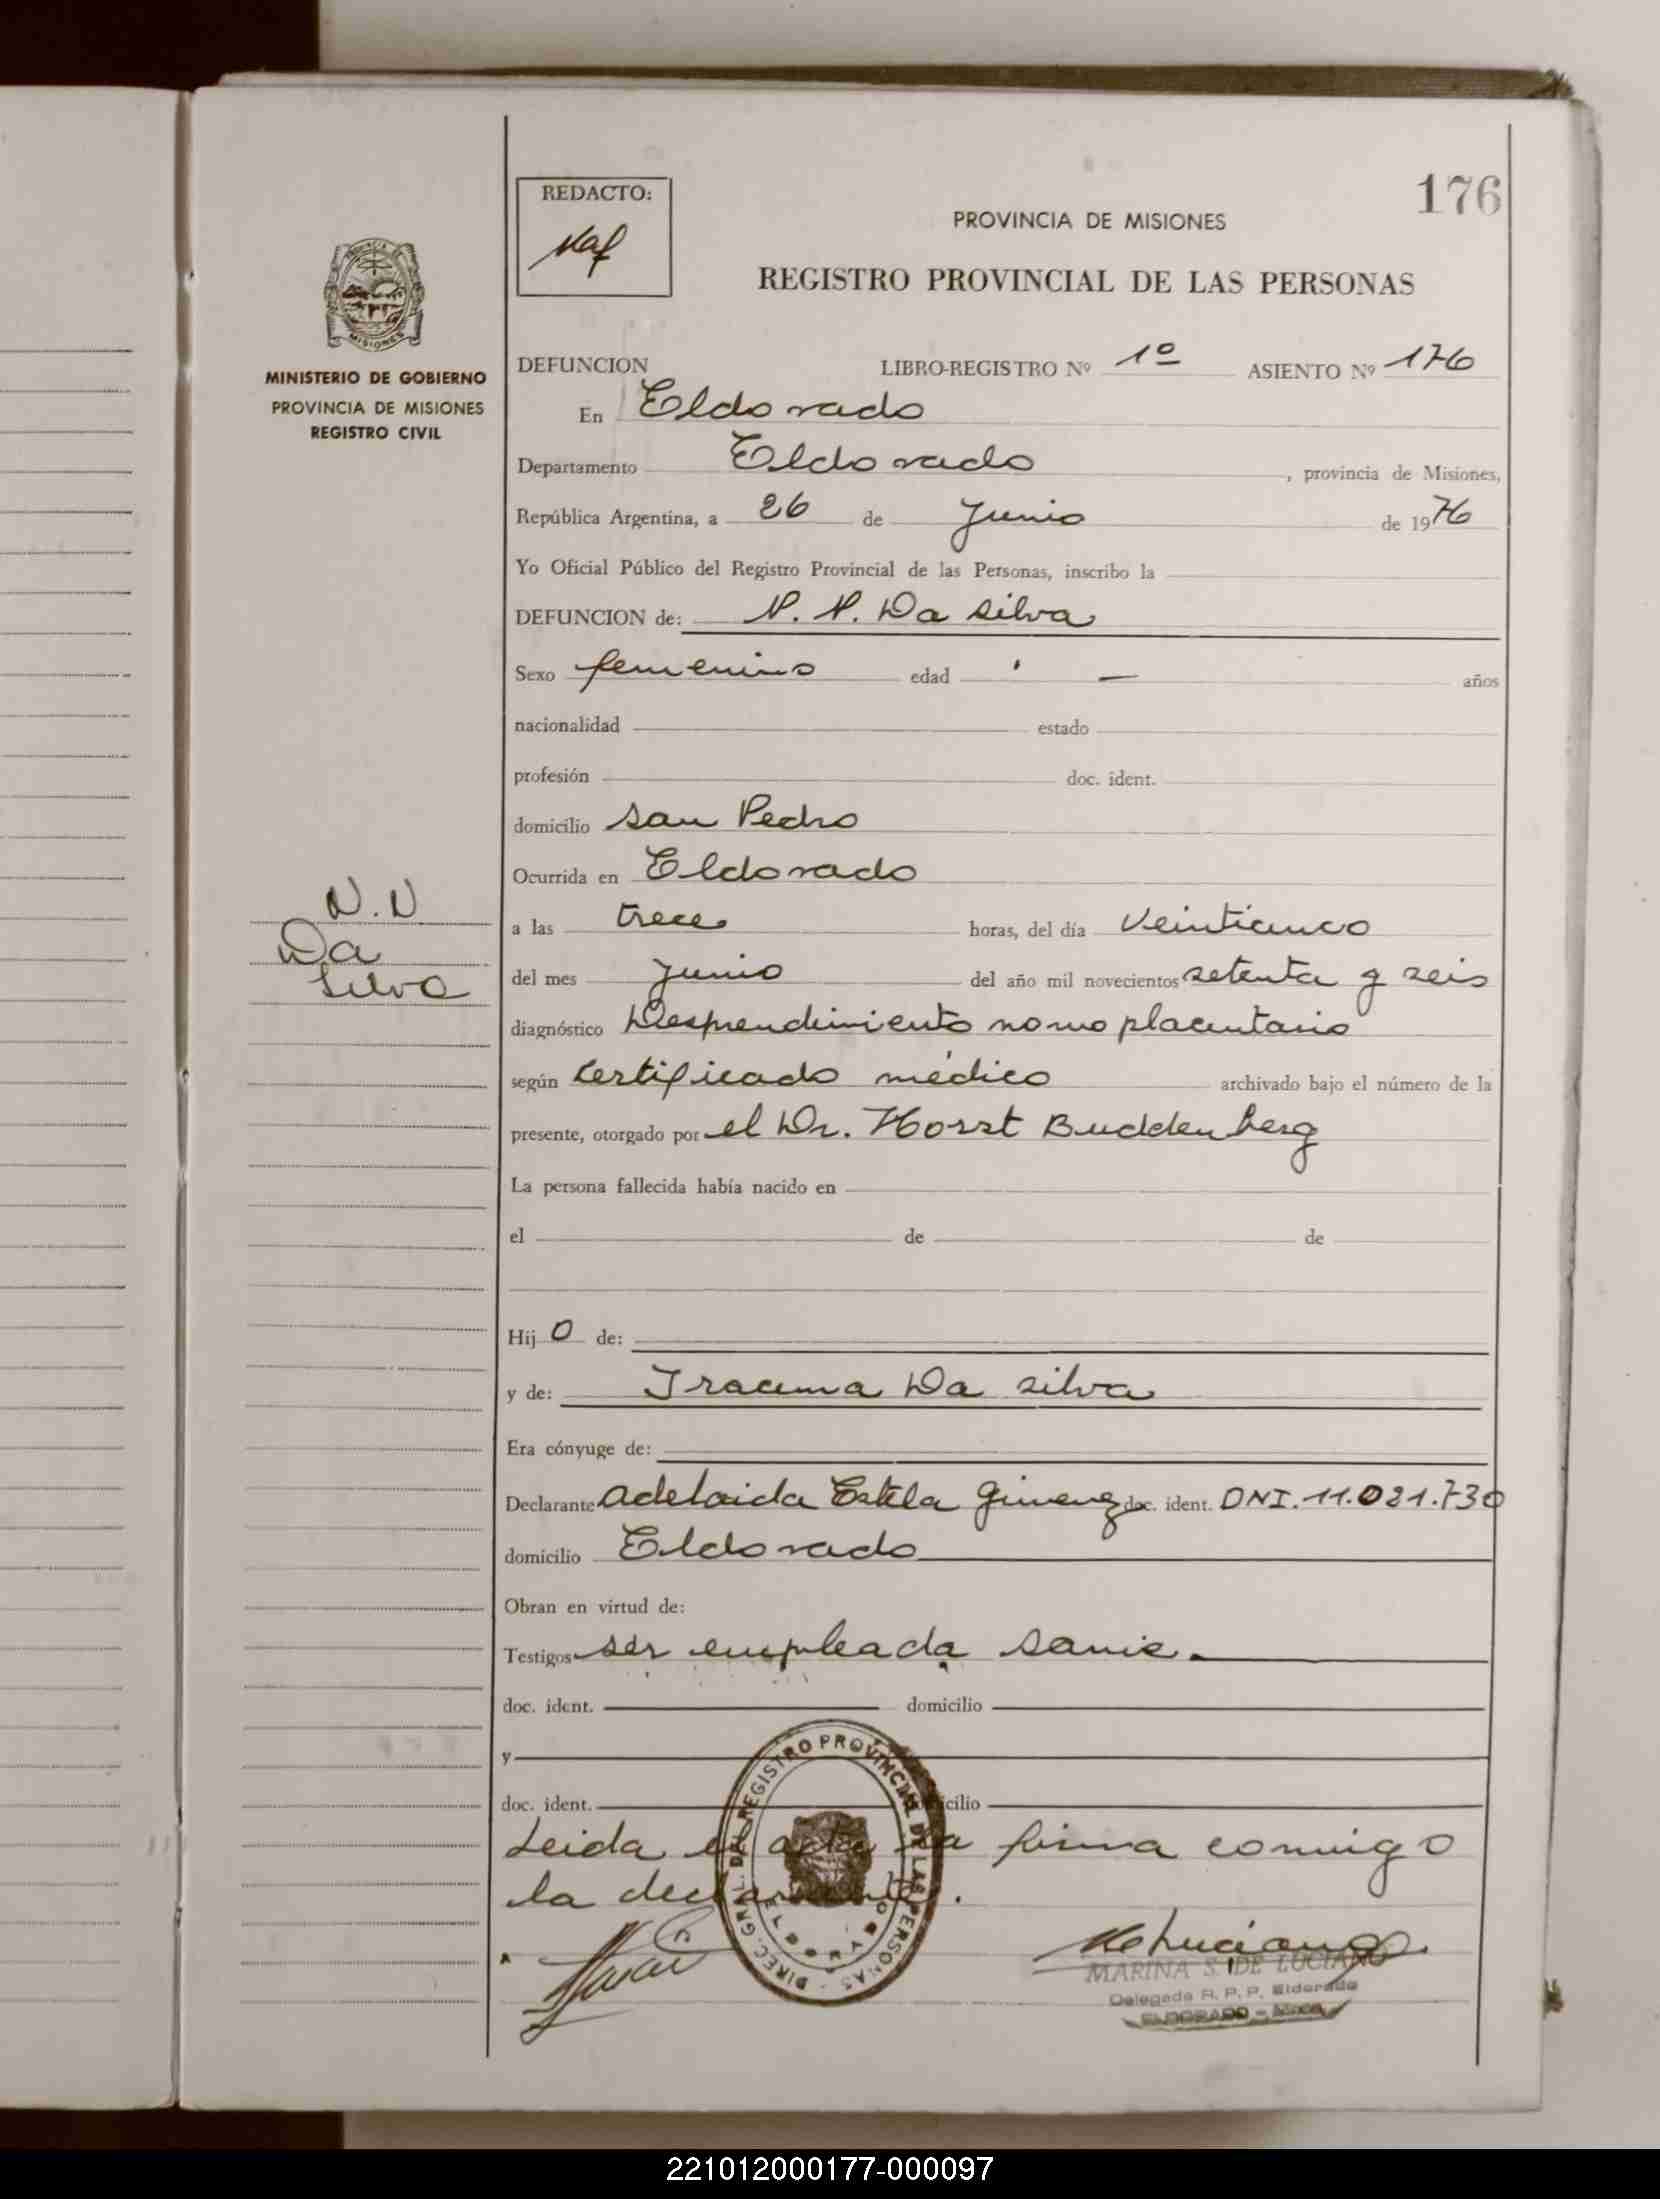 176
REDACTO:
PROVINCIA DE MISIONES
REGISTRO PROVINCIAL DE LAS PERSONAS
MINISTERIO DE GOBIERNO
PROVINCIA DE MISIONES
REGISTRO CIVIL
DEFUNCION LIBRO-REGISTRO Nº 1º ASIENTO Nº 176
En Eldorado
Departamento Eldorado, provincia de Misiones,
República Argentina, a 26 de Junio de 1976
Yo Oficial Público del Registro Provincial de las Personas, inscribo la
DEFUNCION de: N. N. Da Silva
Sexo femenino edad — años
nacionalidad estado
profesión doc. ident.
domicilio San Pedro
Ocurrida en Eldorado
N.N
Da
Silva
a las trece horas, del día veinticinco
del mes Junio del año mil novecientos setenta y seis
diagnóstico Desprendimiento nomo placentario
según certificado médico archivado bajo el número de la
presente, otorgado por el Dr. Horst Buddenberg
La persona fallecida había nacido en
el de de
Hij o de:
y de: Iracema Da Silva
Era cónyuge de:
Declarante Adelaida Estela Gimenez doc. ident. DNI. 11.021.730
domicilio Eldorado
Obran en virtud de:
Testigos ser empleada Sanie.
doc. ident. domicilio
y
doc. ident. domicilio
Leida el acta la firma conmigo
la declarante.
DIREC. GRAL. DEL REGISTRO PROVINCIAL DE LAS PERSONAS
ELDORADO
MARINA S. DE LUCIANO
Delegada R. P. P. Eldorado
ELDORADO - Mnes
221012000177-000097